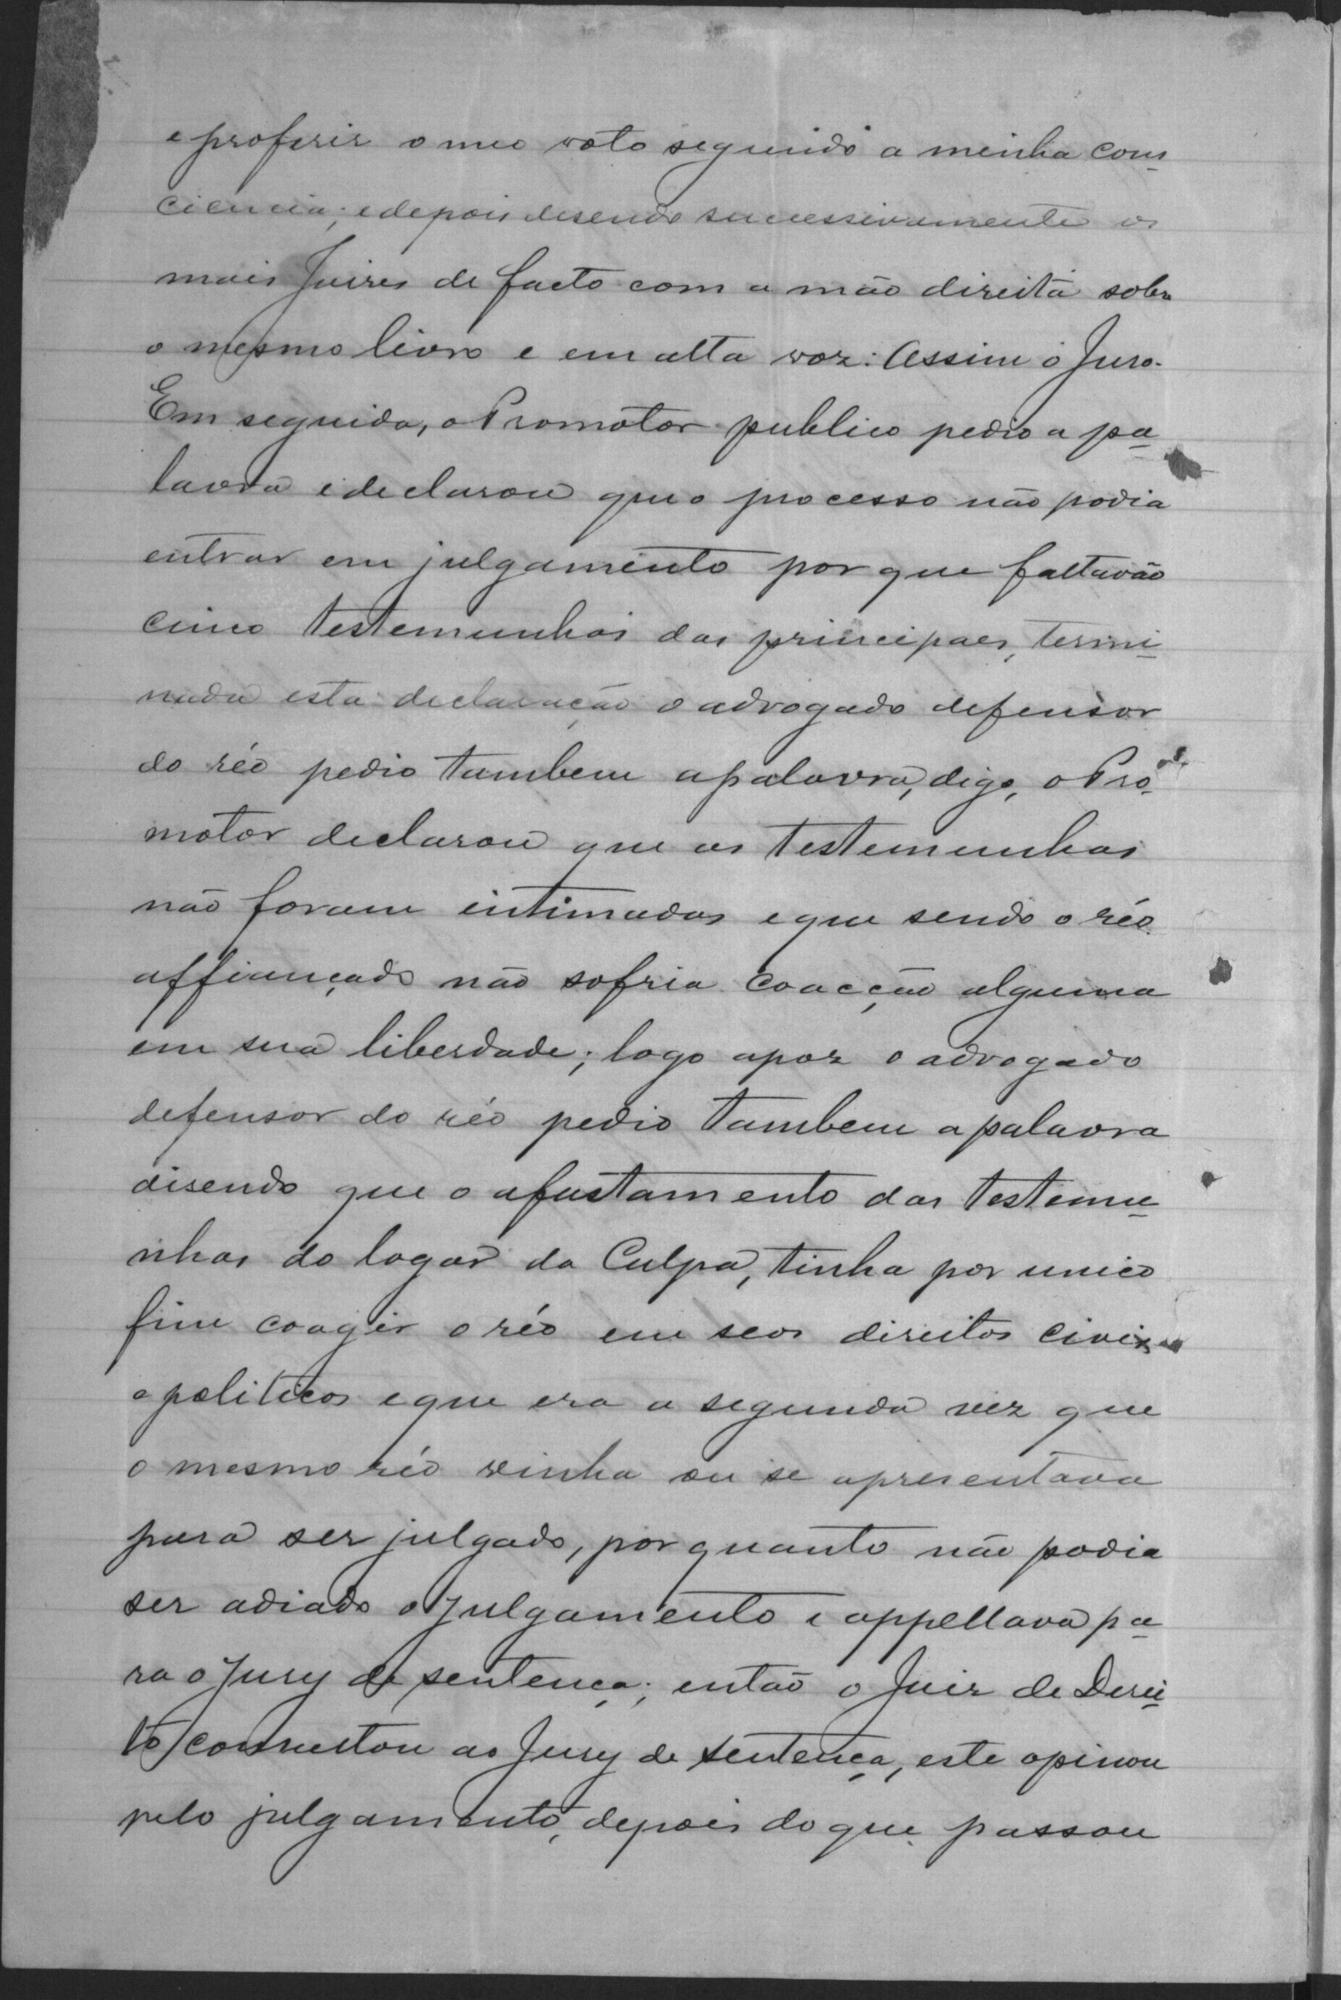 e proferir o meo voto seguindo a minha cons
ciencia; e depois disendo successivamente os
mais Juises de facto com a mão direita sobre
o mesmo livro e em alta voz: Assim o Juro.
Em seguida, o Promotor publico pedio a pa
lavra e declarou que o processo não podia
entrar em julgamento por que faltavão
cinco testemunhas das principaes, termi
nada esta declaração o advogado defensor
do réo pedio tambem a palavra, digo, o Pro
motor declarou que as testemunhas
não foram intimadas e que sendo o réo
affiançado não sofria coacção alguma
em sua liberdade; logo apoz o advogado
defensor do réo pedio tambem a palavra
disendo que o afastamento das testemu
nhas do logar da Culpa, tinha por unico
fim coagir o réo em seos direitos civis
e politicos e que era a segunda vez que
o mesmo réo vinha ou se apresentava
para ser julgado, por quanto não podia
ser adiado o julgamento e appellava pa
ra o Jury de sentença; então o Juiz de Derei
to consultou ao Jury de sentença, este opinou
pelo julgamento, depois do que passou